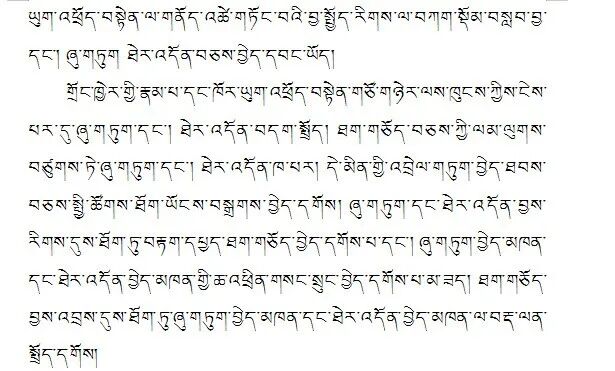 ཡུག་འཕྲོད་བསྟེན་ལ་གནོད་འཚེ་གཏོང་བའི་བྱ་སྤྱོད་རིགས་ལ་བཀག་སྡོམ་བསླབ་བྱ་
དང་། ཞུ་གཏུག ཐེར་འདོན་བཅས་བྱེད་དབང་ཡོད།
གྲོང་ཁྱེར་གྱི་རྣམ་པ་དང་ཁོར་ཡུག་འཕྲོད་བསྟེན་གཙོ་གཉེར་ལས་ཁུངས་ཀྱིས་ངེས་
པར་དུ་ཞུ་གཏུག་དང་། ཐེར་འདོན་བདག་སྤྲོད། ཐག་གཅོད་བཅས་ཀྱི་ལམ་ལུགས་
བཙུགས་ཏེ་ཞུ་གཏུག་དང་། ཐེར་འདོན་ཁ་པར། དེ་མིན་གྱི་འབྲེལ་གཏུག་བྱེད་ཐབས་
བཅས་སྤྱི་ཚོགས་ཐོག་ཡོངས་བསྒྲགས་བྱེད་དགོས། ཞུ་གཏུག་དང་ཐེར་འདོན་བྱས་
རིགས་དུས་ཐོག་ཏུ་བརྟག་དཔྱད་ཐག་གཅོད་བྱེད་དགོས་པ་དང་། ཞུ་གཏུག་བྱེད་མཁན་
དང་ཐེར་འདོན་བྱེད་མཁན་གྱི་ཆ་འཕྲིན་གསང་སྲུང་བྱེད་དགོས་པ་མ་ཟད། ཐག་གཅོད་
བྱས་འབྲས་དུས་ཐོག་ཏུ་ཞུ་གཏུག་བྱེད་མཁན་དང་ཐེར་འདོན་བྱེད་མཁན་ལ་བརྡ་ལན་
སྤྲོད་དགོས།